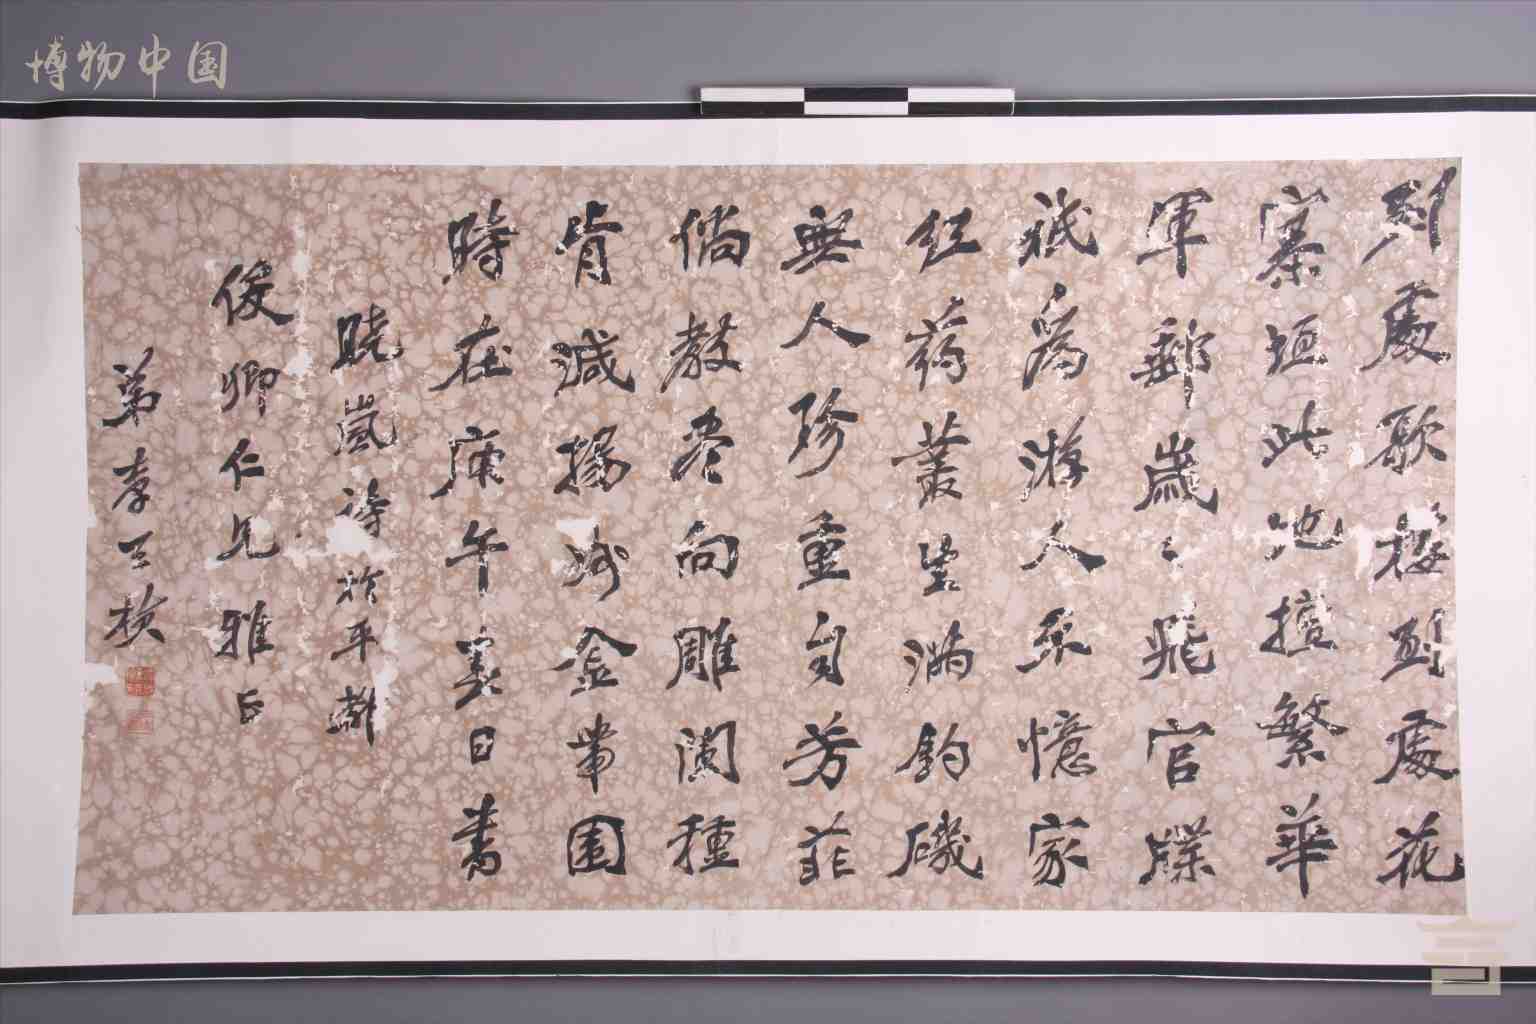 博物中国
到處歌楼到處花
塞垣此地擅繁華
軍郵歲〻飛官牒
祇為游人憶家
紅药叢生滿釣磯
無人珍重自芳菲
倘教尽向雕闌種
肯減揚州金帶围
時在庚午夏日書
曉嵐詩於平
俊卿仁兄雅正
弟李